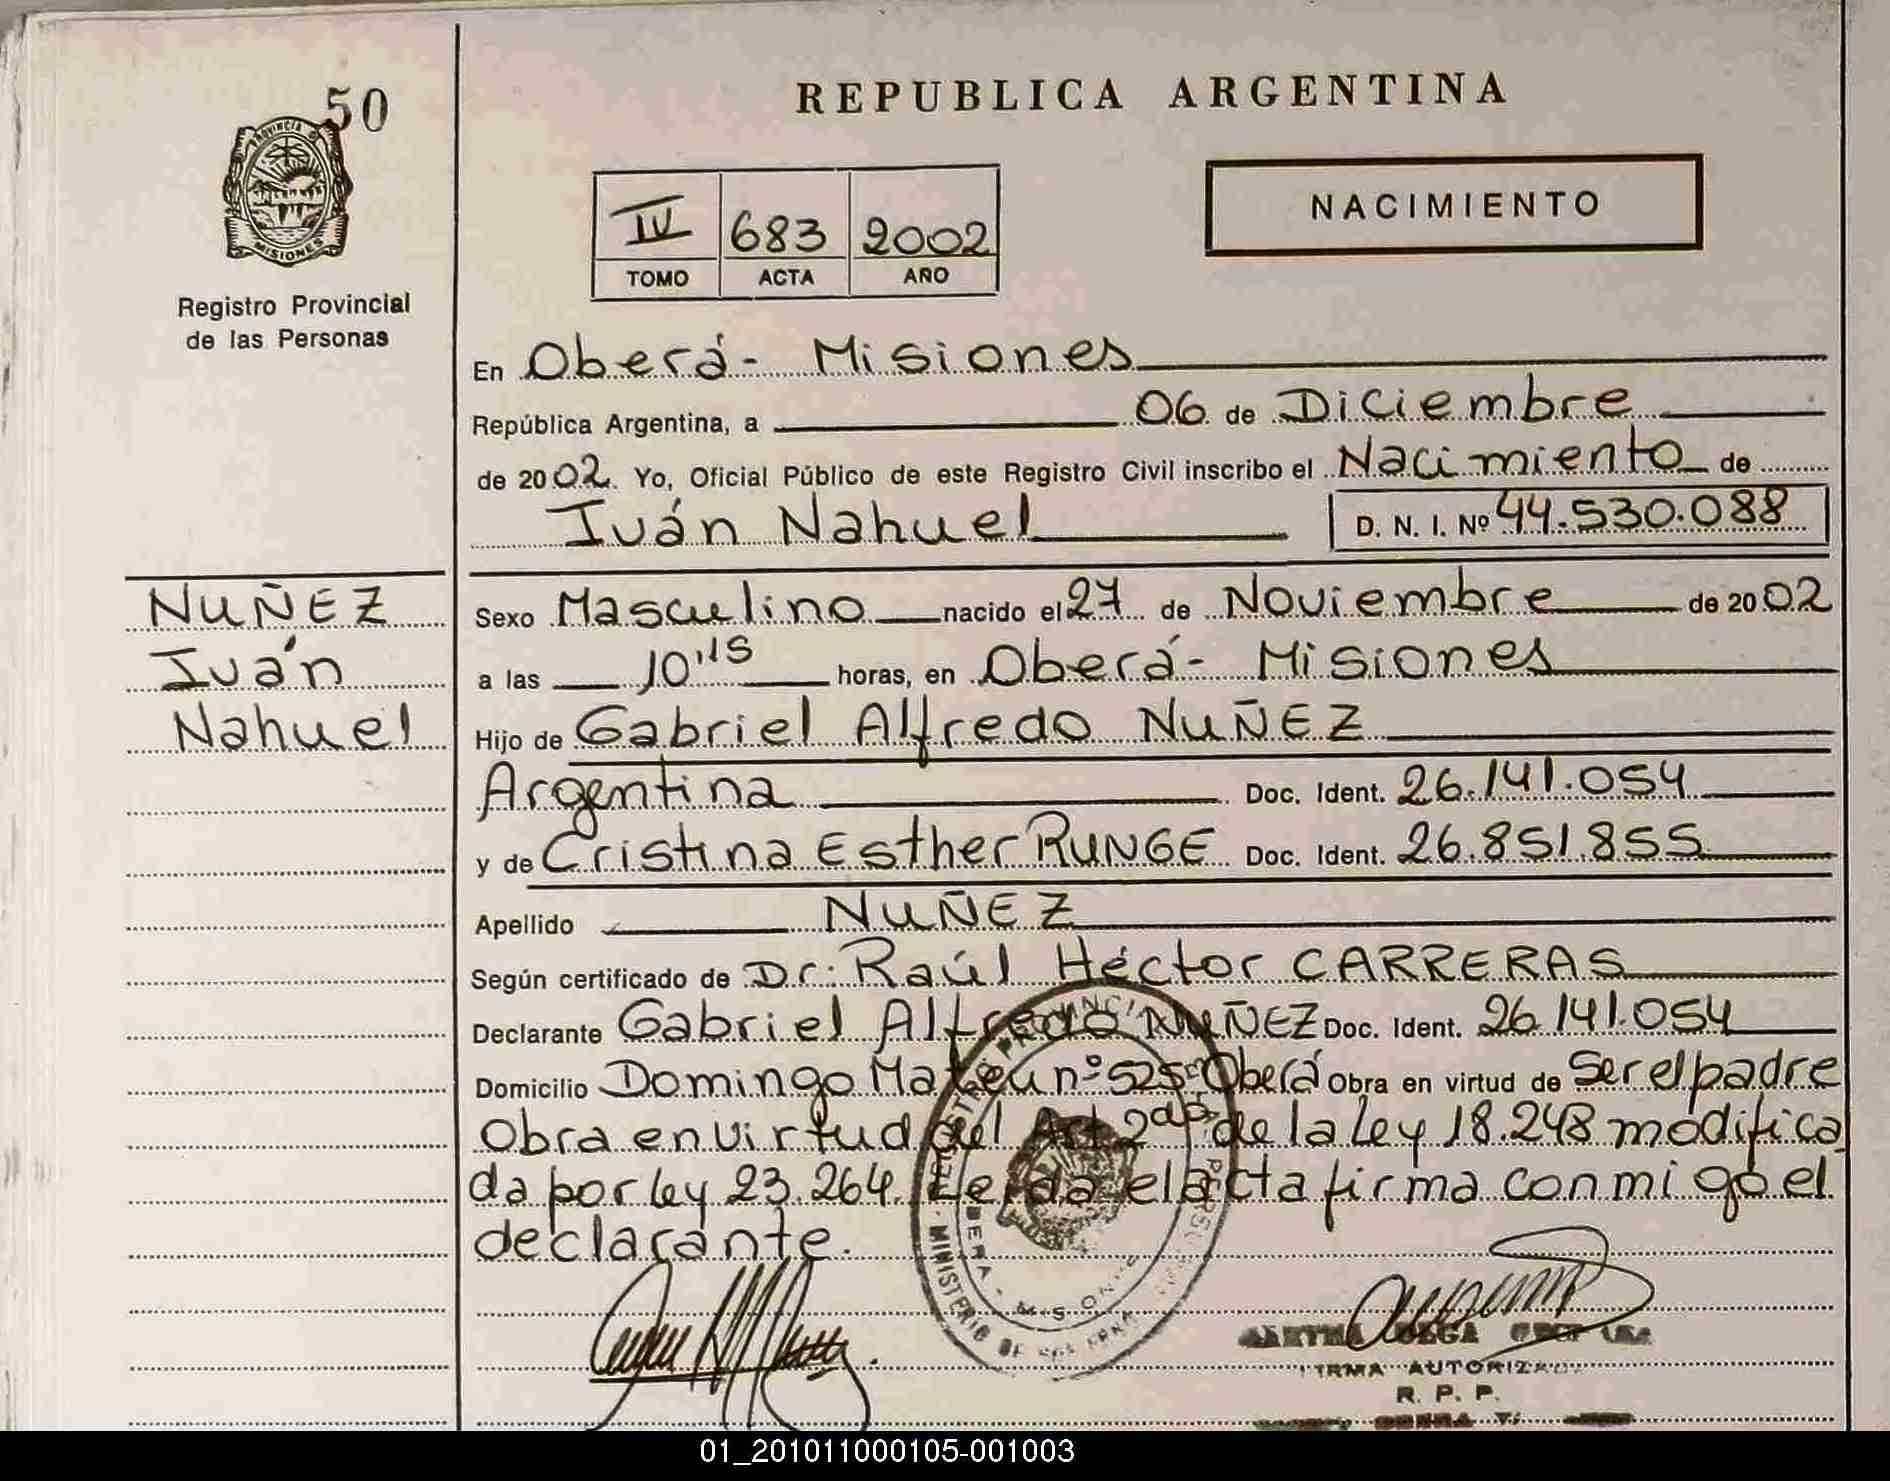 50
PROVINCIA DE
MISIONES
Registro Provincial
de las Personas
REPUBLICA ARGENTINA
NACIMIENTO
IV 683 2002
TOMO ACTA AÑO
En Oberá - Misiones
República Argentina, a 06 de Diciembre
de 2002. Yo, Oficial Público de este Registro Civil inscribo el Nacimiento de
Iván Nahuel D. N. I. Nº 44.530.088
NUÑEZ
Iván
Nahuel
Sexo Masculino nacido el 27 de Noviembre de 2002
a las 10'15 horas, en Oberá - Misiones
Hijo de Gabriel Alfredo NUÑEZ
Argentina Doc. Ident. 26.141.054
y de Cristina Esther RUNGE Doc. Ident. 26.851.855
Apellido NUÑEZ
Según certificado de Dr. Raúl Héctor CARRERAS
Declarante Gabriel Alfredo NUÑEZ Doc. Ident. 26.141.054
Domicilio Domingo Mateu nº 525 Oberá Obra en virtud de Ser el padre
Obra en virtud del Art 2do de la Ley 18.248 modifica
da por ley 23.264. Leída el acta firma conmigo el
declarante.
MINISTERIO DE
FIRMA AUTORIZADA
R. P. P.
01_201011000105-001003